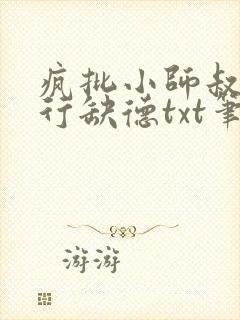 疯批小师叔
行缺德txt笔
游游